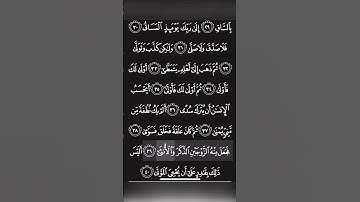 بِٱلسَّاقِ ٢٩ إِلَىٰ رَبِّكَ يَوْمَئِذٍ ٱلْمَسَاقُ ٣٠
فَلَا صَدَّقَ وَلَا صَلَّىٰ ٣١ وَلَٰكِن كَذَّبَ وَتَوَلَّىٰ
٣٢ ثُمَّ ذَهَبَ إِلَىٰٓ أَهْلِهِۦ يَتَمَطَّىٰٓ ٣٣ أَوْلَىٰ لَكَ
فَأَوْلَىٰ ٣٤ ثُمَّ أَوْلَىٰ لَكَ فَأَوْلَىٰٓ ٣٥ أَيَحْسَبُ
ٱلْإِنسَٰنُ أَن يُتْرَكَ سُدًى ٣٦ أَلَمْ يَكُ نُطْفَةً مِّن
مَّنِىٍّ يُمْنَىٰ ٣٧ ثُمَّ كَانَ عَلَقَةً فَخَلَقَ فَسَوَّىٰ ٣٨
فَجَعَلَ مِنْهُ ٱلزَّوْجَيْنِ ٱلذَّكَرَ وَٱلْأُنثَىٰٓ ٣٩ أَلَيْسَ
ذَٰلِكَ بِقَٰدِرٍ عَلَىٰٓ أَن يُحْۦِىَ ٱلْمَوْتَىٰ ٤٠